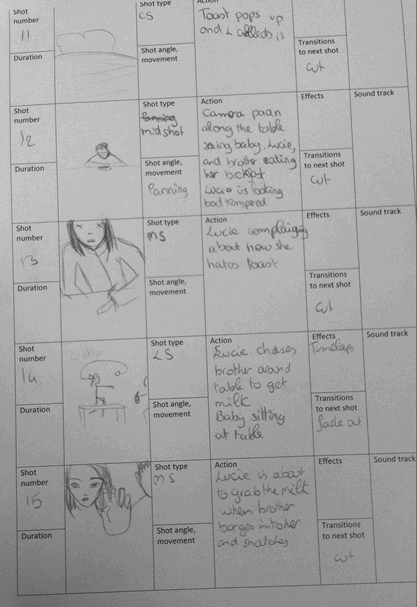 Shot number
11
Duration
Shot type
CS
Shot angle, movement
Action
Toast pops up
and L
Transitions to next shot
Cut
Shot number
12
Duration
Shot type
mid shot
Shot angle, movement
Panning
Action
Camera paan
along the table
seing baby, Lucie,
and brother eating
her brekfast
Lucie is looking
bad tempered
Effects
Transitions to next shot
Cut
Sound track
Shot number
13
Duration
Shot type
MS
Shot angle, movement
Action
Lucie complaigng
about how she
hates toast
Effects
Transitions to next shot
Cut
Sound track
Shot number
14
Duration
Shot type
LS
Shot angle, movement
Action
Lucie chases
brother around
table to get
milk
Baby sitting
at table
Effects
Timelaps
Transitions to next shot
fade out
Sound track
Shot number
15
Duration
Shot type
MS
Shot angle, movement
Action
Lucie is about
to grab the milk
when brother
barges into her
and snatches
Effects
Transitions to next shot
Cut
Sound track